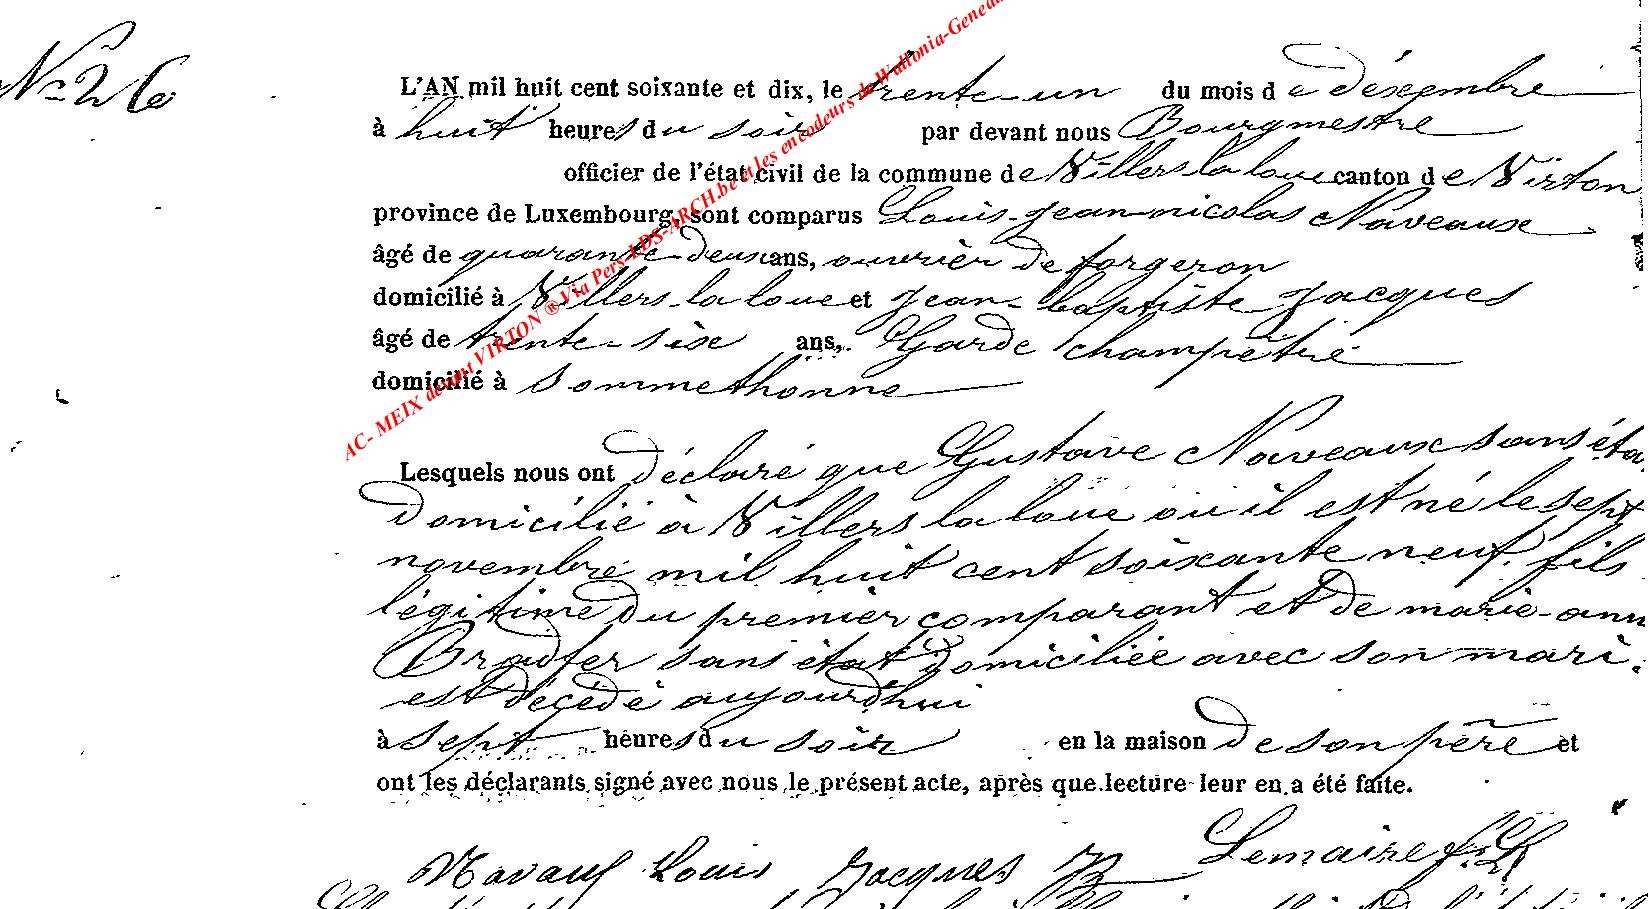 N° 26
L'AN mil huit cent soixante et dix, le trente-un du mois de désembre
à huit heures du soir par devant nous Bourgmestre
officier de l'état civil de la commune de Villers la loue canton de Virton
province de Luxembourg, sont comparus Louis-jean-nicolas Naveaux
âgé de quarante-deux ans, ouvrier de forgeron
domicilié à Villers-la loue et jean-baptiste jacques
âgé de trente-six ans, Garde champêtre
domicilié à Sommethonne
Lesquels nous ont déclaré que Gustave Naveaux sans éta
domicilié à Villers la loue où il est né le sept
novembre mil huit cent soixante neuf, fils
légitime du premier comparant et de marie-ann
Bradfer sans état domiciliée avec son mari.
est décédé aujourd'hui
à sept heures du soir en la maison de son père et
ont les déclarants signé avec nous le présent acte, après que lecture leur en a été faite.
Navaux Louis Jacques JB Lemaire
AC- MEIX devant VIRTON ® Via Pers-LDS-ARCH.be et les encodeurs de Wallonia-Genea